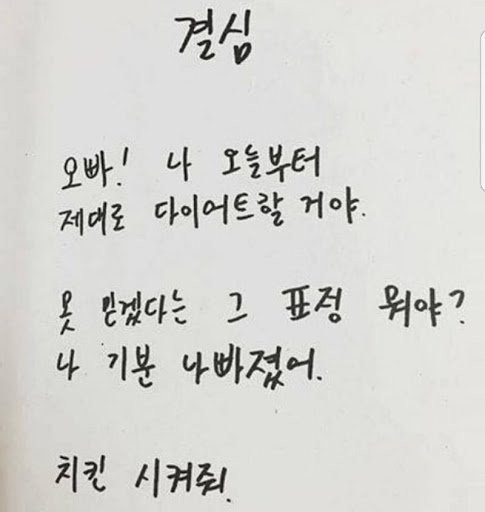 결심
오빠! 나 오늘부터
제대로 다이어트할 거야.
못 믿겠다는 그 표정 뭐야?
나 기분 나빠졌어.
치킨 시켜줘.